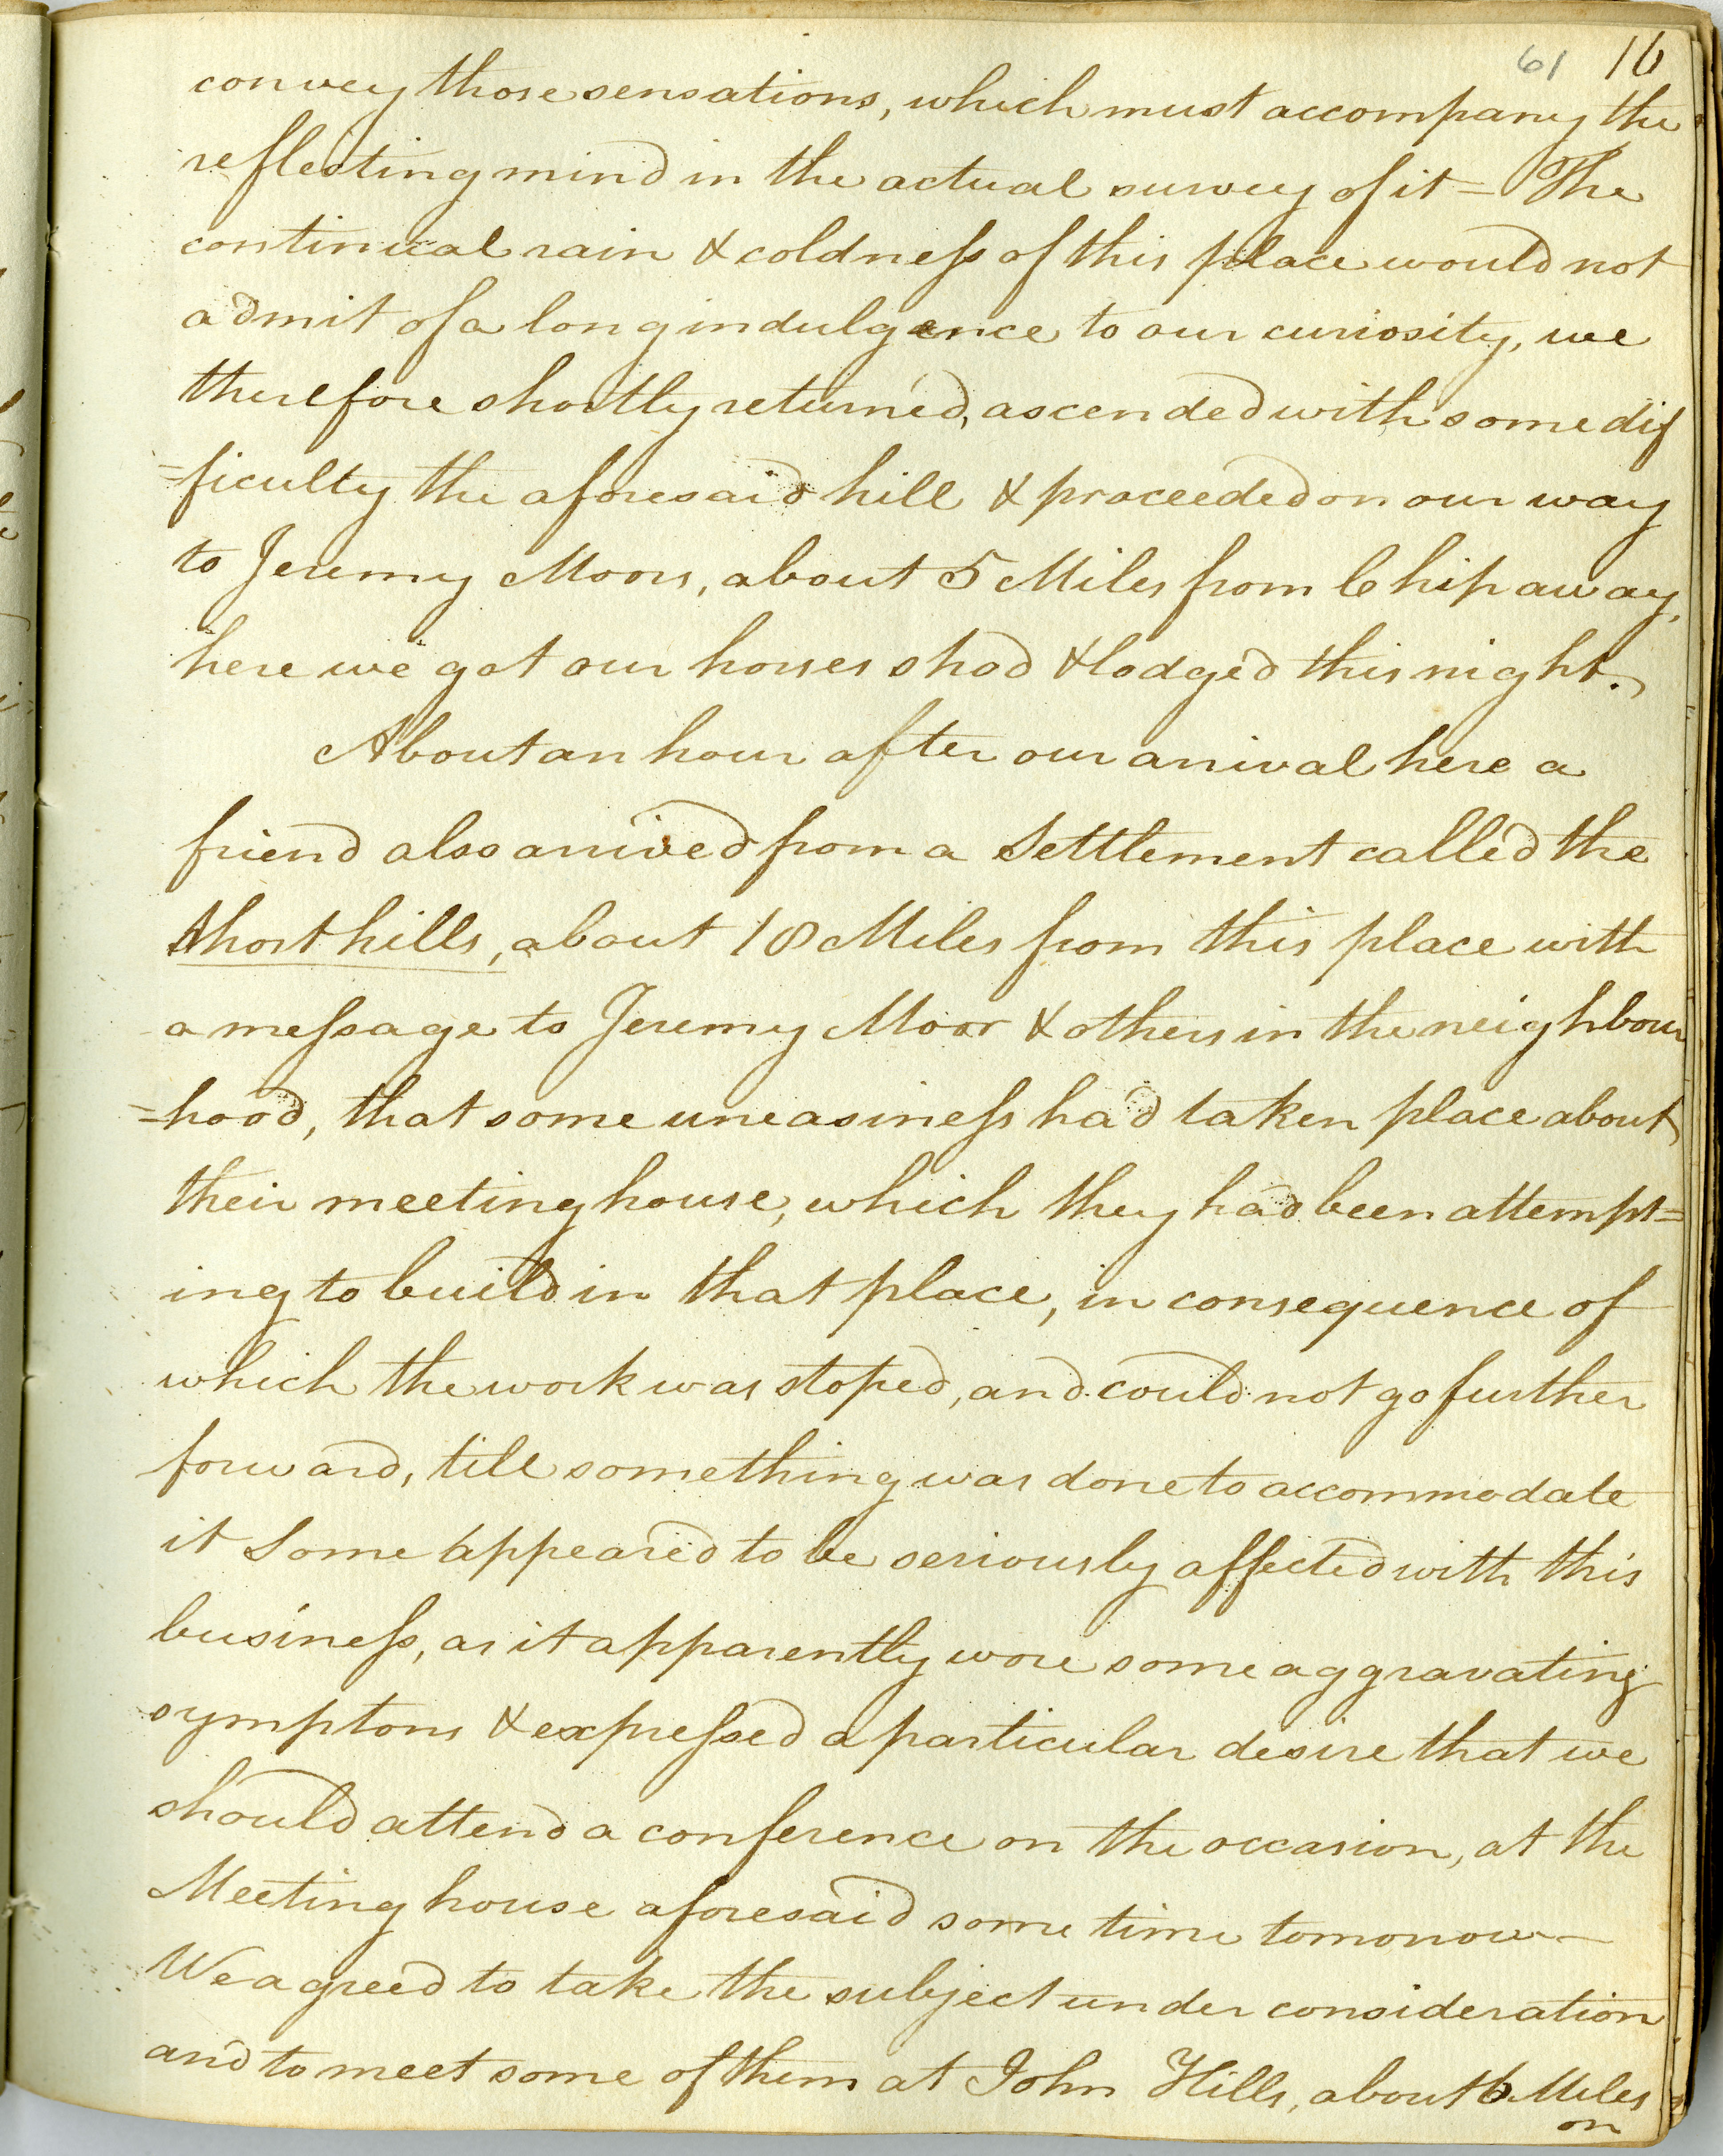 61 16
convey those sensations, which must accompany the
reflecting mind in the actual survey of it = The
continual rain & coldness of this place would not
admit of a long indulgence to our curiosity, we
therefore shortly returned, ascended with some dif
=ficulty the aforesaid hill & proceeded on our way
to Jeremy Moors, about 5 Miles from Chipaway,
here we got our horses shod & lodged this night.
About an hour after our arrival here a
friend also arrived from a Settlement called the
Short hills, about 10 Miles from this place with
a message to Jeremy Moor & others in the neighbour
=hood, that some uneasiness had taken place about
their meeting house, which they had been attempt=
ing to build in that place, in consequence of
which the work was stoped, and could not go further
forward, till something was done to accommodate
it Some appeared to be seriously affected with this
business, as it apparently wore some aggravating
symptons & expressed a particular desire that we
should attend a conference on the occasion, at the
Meeting house aforesaid some time tomorrow—
We agreed to take the subject under consideration
and to meet some of them at John Hills, about 6 Miles
on